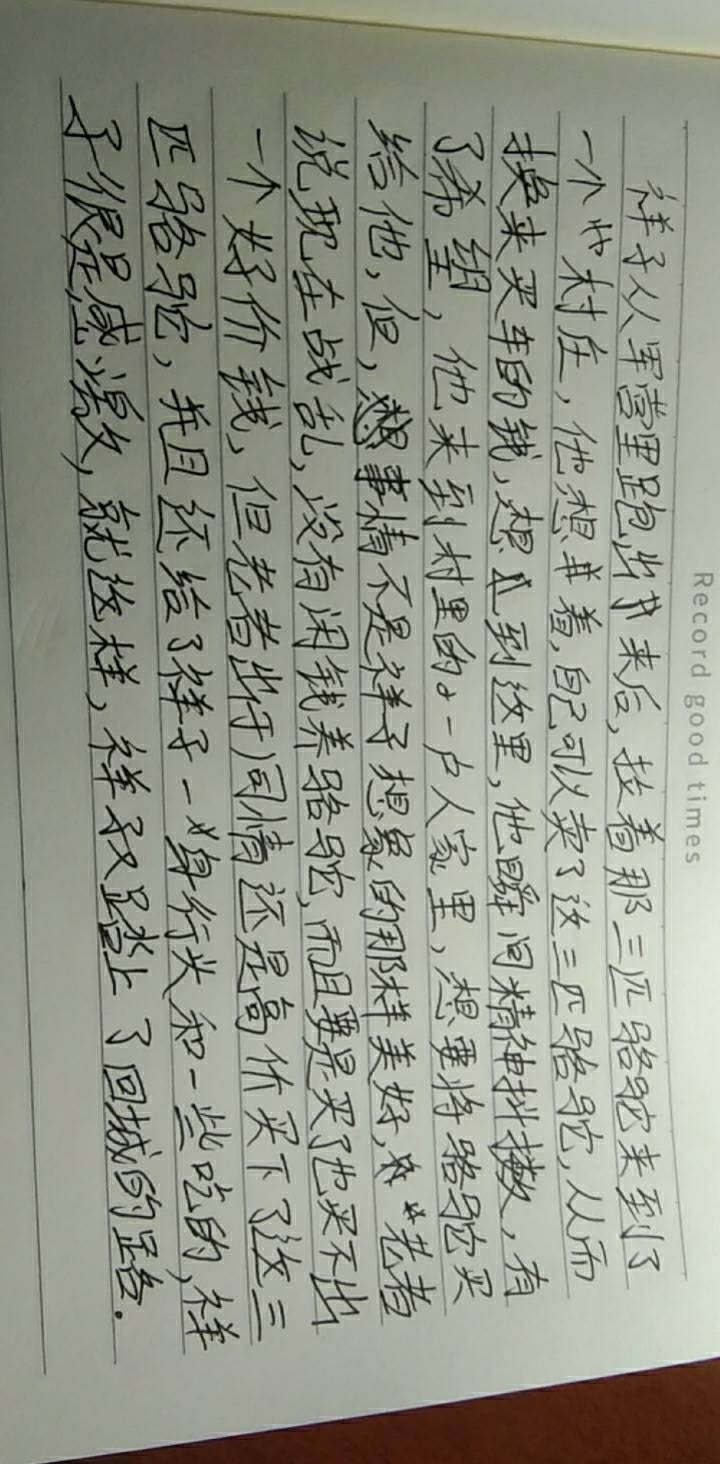 Record good times
祥子从军营里跑出来后,拉着那三匹骆驼来到了
一个村庄,他想着,自己可以卖了这三匹骆驼,从而
换来买车的钱,想到这里,他瞬间精神抖擞,有
了希望,他来到村里的一户人家里,想要将骆驼买
给他,但,事情不是祥子想象的那样美好,老者
说现在战乱,没有闲钱养骆驼,而且要是买了也买不出
一个好价钱,但老者出于同情还是高价买下了这三
匹骆驼,并且还给了祥子一身行头和一些吃的,祥
子很是感激,就这样,祥子又踏上了回城的路。